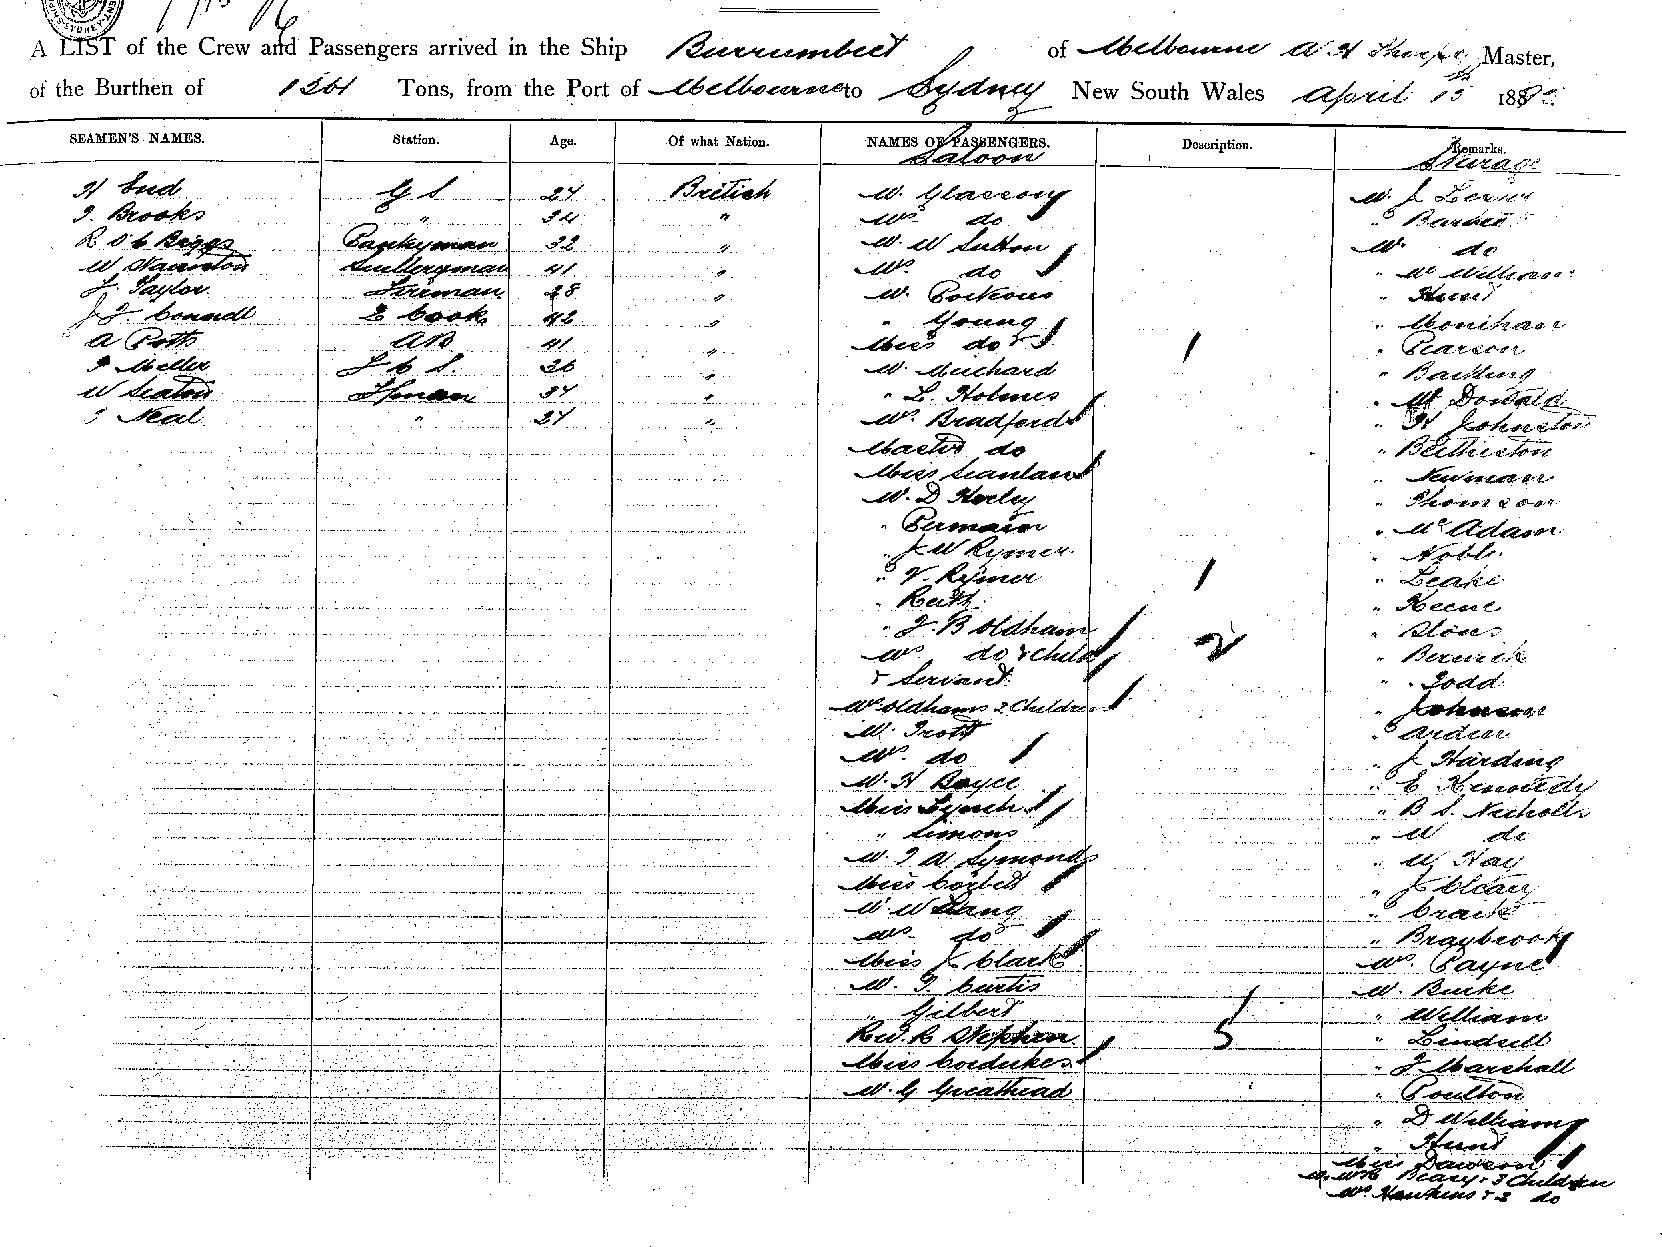 A LIST of the Crew and Passengers arrived in the Ship Burrumbeet of Melbourne A. H Thorpe, Master,
of the Burthen of Tons, from the Port of Melbourne to Sydney New South Wales April 15 188
SEAMEN'S NAMES. Station. Age. Of what Nation. NAMES OF PASSENGERS. Description. Remarks.
Saloon Steerage
H G S 24 British W. Glassony W. J
J. Brooks " 24 " Mrs do " Barber
R Briggs Pantryman 32 " W. W Sutton Mrs do
W Sculleryman 41 " Mrs do " W William
J. Taylor Fireman 28 " W. Porteous " Hunt
J. J. Connell 2 Cook 42 " " Young " Monihan
A Potts AB 41 " Miss do " Pearson
J Meller F C S. 26 " W. Muchard
W Seaton Fman 34 " " L. Holmes " Mc Donald
J Neal " 24 " Mrs Bradford " H Johnston
Master do
Miss Scanlan " Newman
W. D Hoely " Thomson
" Permain " McAdam
" J W Rymer " Noble
" V. Rymer 1 " Leake
" Keith " Keene
" J. B Oldham "
Mrs do & Child 2 " Berwick
& Servant " Todd
Mrs Oldham & 2 Children " Johnson
W. Trott "
Mrs. do " J Harding
W. H Boyce " E Kennedy
Miss Lynch " B S. Nicholls
" Simons " W do
W. J A Symonds " W Hay
Miss Corbett " J Cleary
W W Lang "
Mrs. do " Braybrook
Miss J Clark Mrs. Payne
W. J. Curtis W. Burke
" Gilbert 1 " William
Rev. R Stephen 5 " Lindsell
Miss Coedukes " J Marshall
W. G Greathead " Poulton
" D Williams
" Hunt
Miss Dawson
& 3 Children
Mrs Hawkins & 2 do